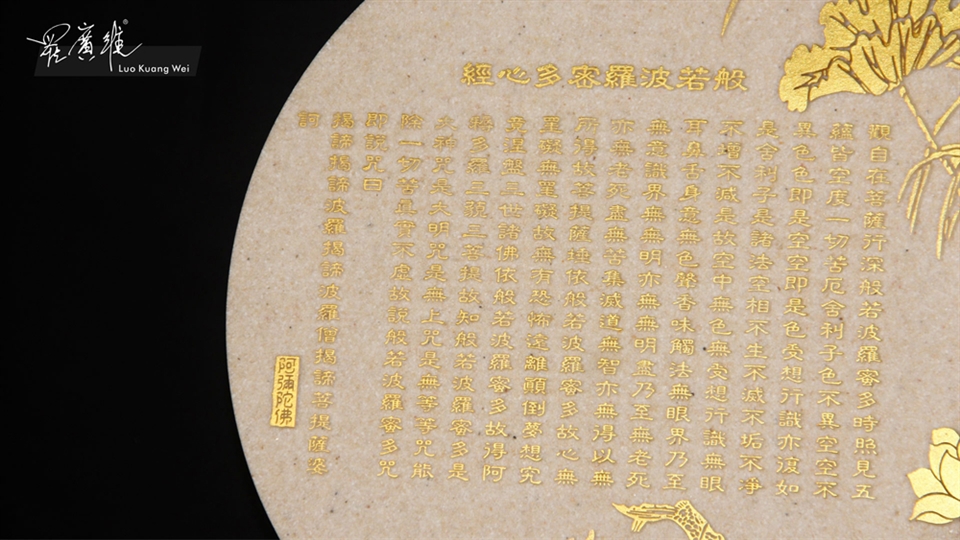 羅廣維®
Luo Kuang Wei
般若波羅密多心經
觀自在菩薩行深般若波羅蜜多時照見五
蘊皆空度一切苦厄舍利子色不異空空不
異色色即是空空即是色受想行識亦復如
是舍利子是諸法空相不生不滅不垢不淨
不增不減是故空中無色無受想行識無眼
耳鼻舌身意無色聲香味觸法無眼界乃至
無意識界無無明亦無無明盡乃至無老死
亦無老死盡無苦集滅道無智亦無得以無
所得故菩提薩埵依般若波羅蜜多故心無
罣礙無罣礙故無有恐怖遠離顛倒夢想究
竟涅盤三世諸佛依般若波羅蜜多故得阿
耨多羅三藐三菩提故知般若波羅蜜多是
大神咒是大明咒是無上咒是無等等咒能
除一切苦真實不虛故說般若波羅蜜多咒
即說咒曰
揭諦揭諦波羅揭諦波羅僧揭諦菩提薩婆
訶
阿彌陀佛